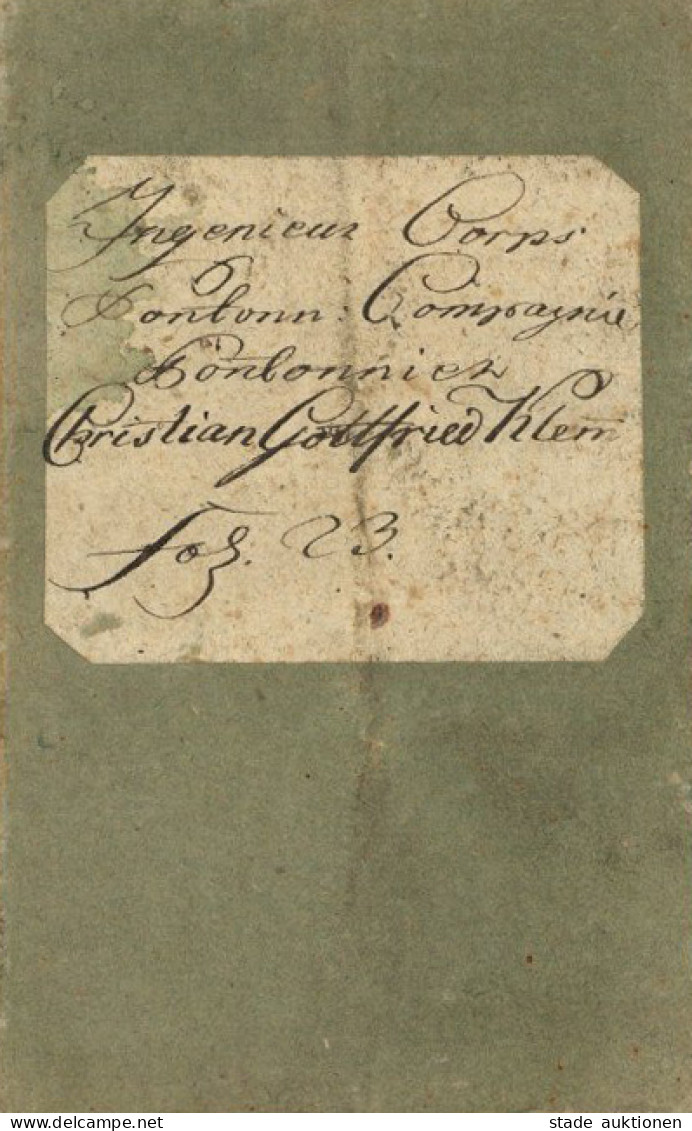 Ingenieur Corps
Pontonn: Compagnie
Pontonnier
Christian Gottfried Klem̅
Fol. 23.
delcampe.net
stade auktionen